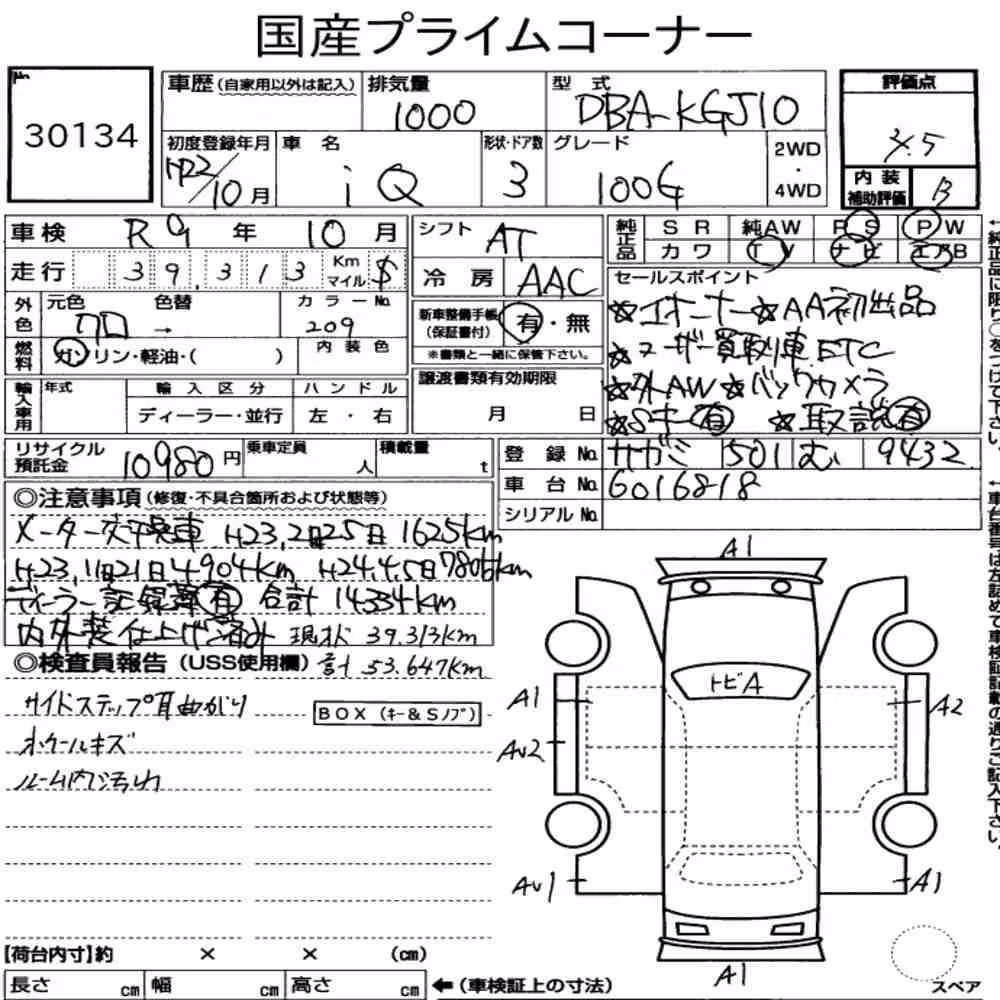 国産プライムコーナー
No.
30134
車歴(自家用以外は記入)
排気量
1000
型式
DBA-KGJ10
評価点
初度登録年月
H22/10月
車名
iQ
形状・ドア数
3
グレード
100G
2WD
・
4WD
内装
補助評価
B
車検 R9年 10月
走行 39,313 Km マイル $
シフト AT
冷房 AAC
純正品
SR 純AW PS PW
カワ TV ナビ エアB
外色
元色 クロ
色替 →
カラーNo. 209
燃料
ガソリン・軽油・( )
内装色
新車整備手帳
(保証書付)
有・無
※書類と一緒に保管下さい。
セールスポイント
☆1オーナー ☆AA初出品
☆ユーザー買取車 ETC
☆外AW ☆バックカメラ
☆Sキー有 ☆取説有
輸入車用
年式
輸入区分
ディーラー・並行
ハンドル
左・右
譲渡書類有効期限
月 日
リサイクル
預託金
10980円
乗車定員
人
積載量
t
登録No. サガミ 501 む 9432
車台No. 6016818
シリアルNo.
◎注意事項(修復・不具合箇所および状態等)
メーター交換車 H23,2月25日 1625km
H23,11月21日 4904km H24.4.5日 7805km
ディーラー記録簿有 合計 14334km
内外装仕上げ済み 現状 39.313km
◎検査員報告(USS使用欄) 計 53.647km
サイドステップ耳曲がり
BOX(キー&Sノブ)
ホイールキズ
ルーム内汚れ
A1
トビA
A1
A2
AU2
AU1
A1
A1
【荷台内寸】約 × × (cm)
長さ cm 幅 cm 高さ cm ←(車検証上の寸法)
スペア
←純正品に限り○をつけて下さい。
←車台番号は左詰めで車検証記載の通りご記入下さい。